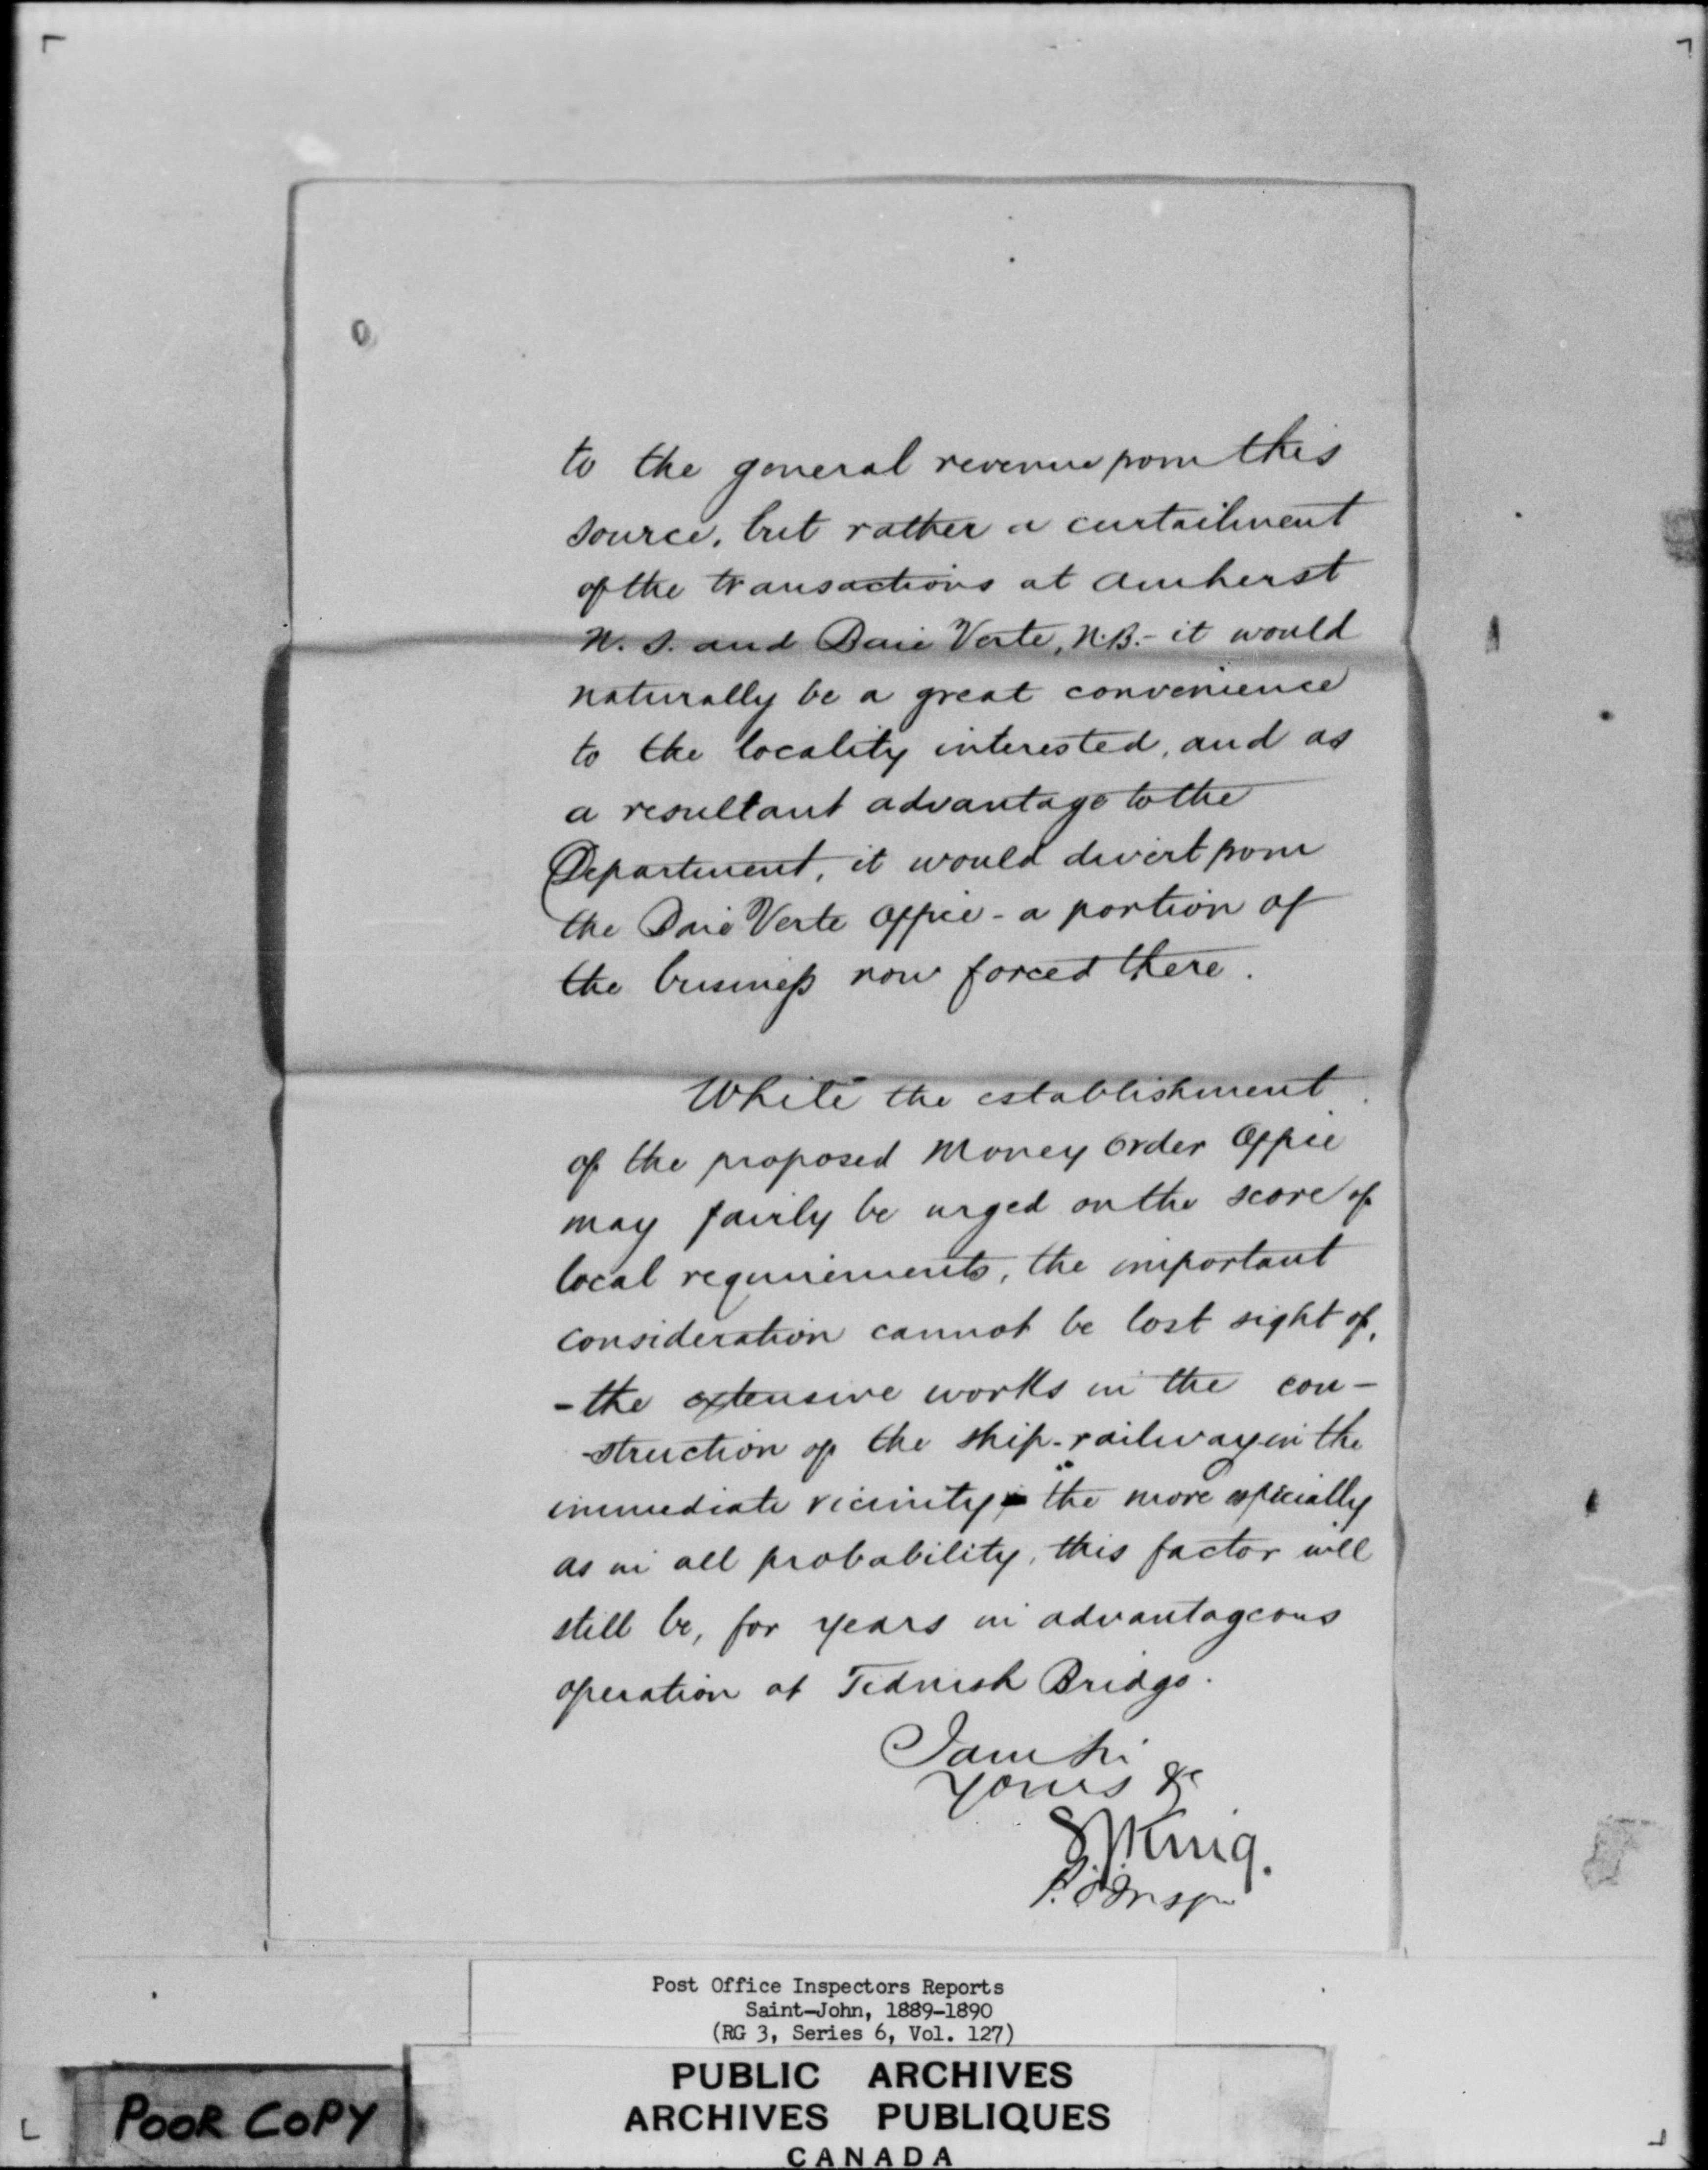 to the general revenue from this
source, but rather a curtailment
of the transactions at Amherst
N. S. and Baie Verte, N.B. - it would
naturally be a great convenience
to the locality interested, and as
a resultant advantage to the
Department, it would divert from
the Baie Verte Office - a portion of
the business now forced there.
While the establishment
of the proposed Money Order Office
may fairly be urged on the score of
local requirements, the important
consideration cannot be lost sight of,
- the extensive works in the con-
-struction of the ship-railway in the
immediate vicinity - the more especially
as in all probability, this factor will
still be, for years in advantageous
operation at Tidnish Bridge.
I am Sir
Yours &c
S.J. King.
P.O. Inspr
Post Office Inspectors Reports
Saint-John, 1889-1890
(RG 3, Series 6, Vol. 127)
PUBLIC ARCHIVES
ARCHIVES PUBLIQUES
CANADA
POOR COPY